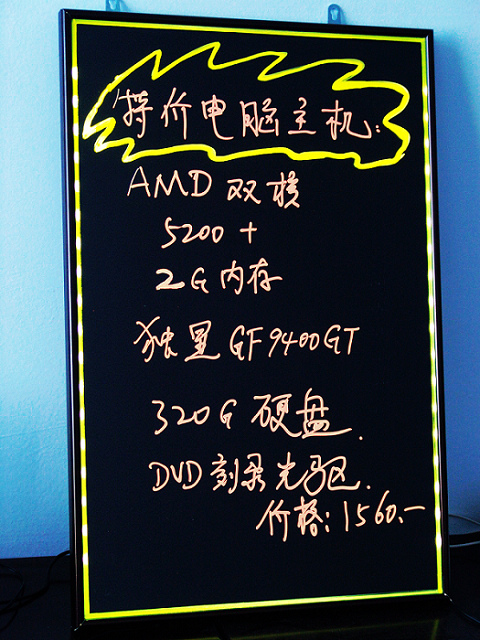 特价电脑主机:
AMD 双核
5200+
2G内存
独显GF9400GT
320G 硬盘.
DVD刻录光驱.
价格:1560.一